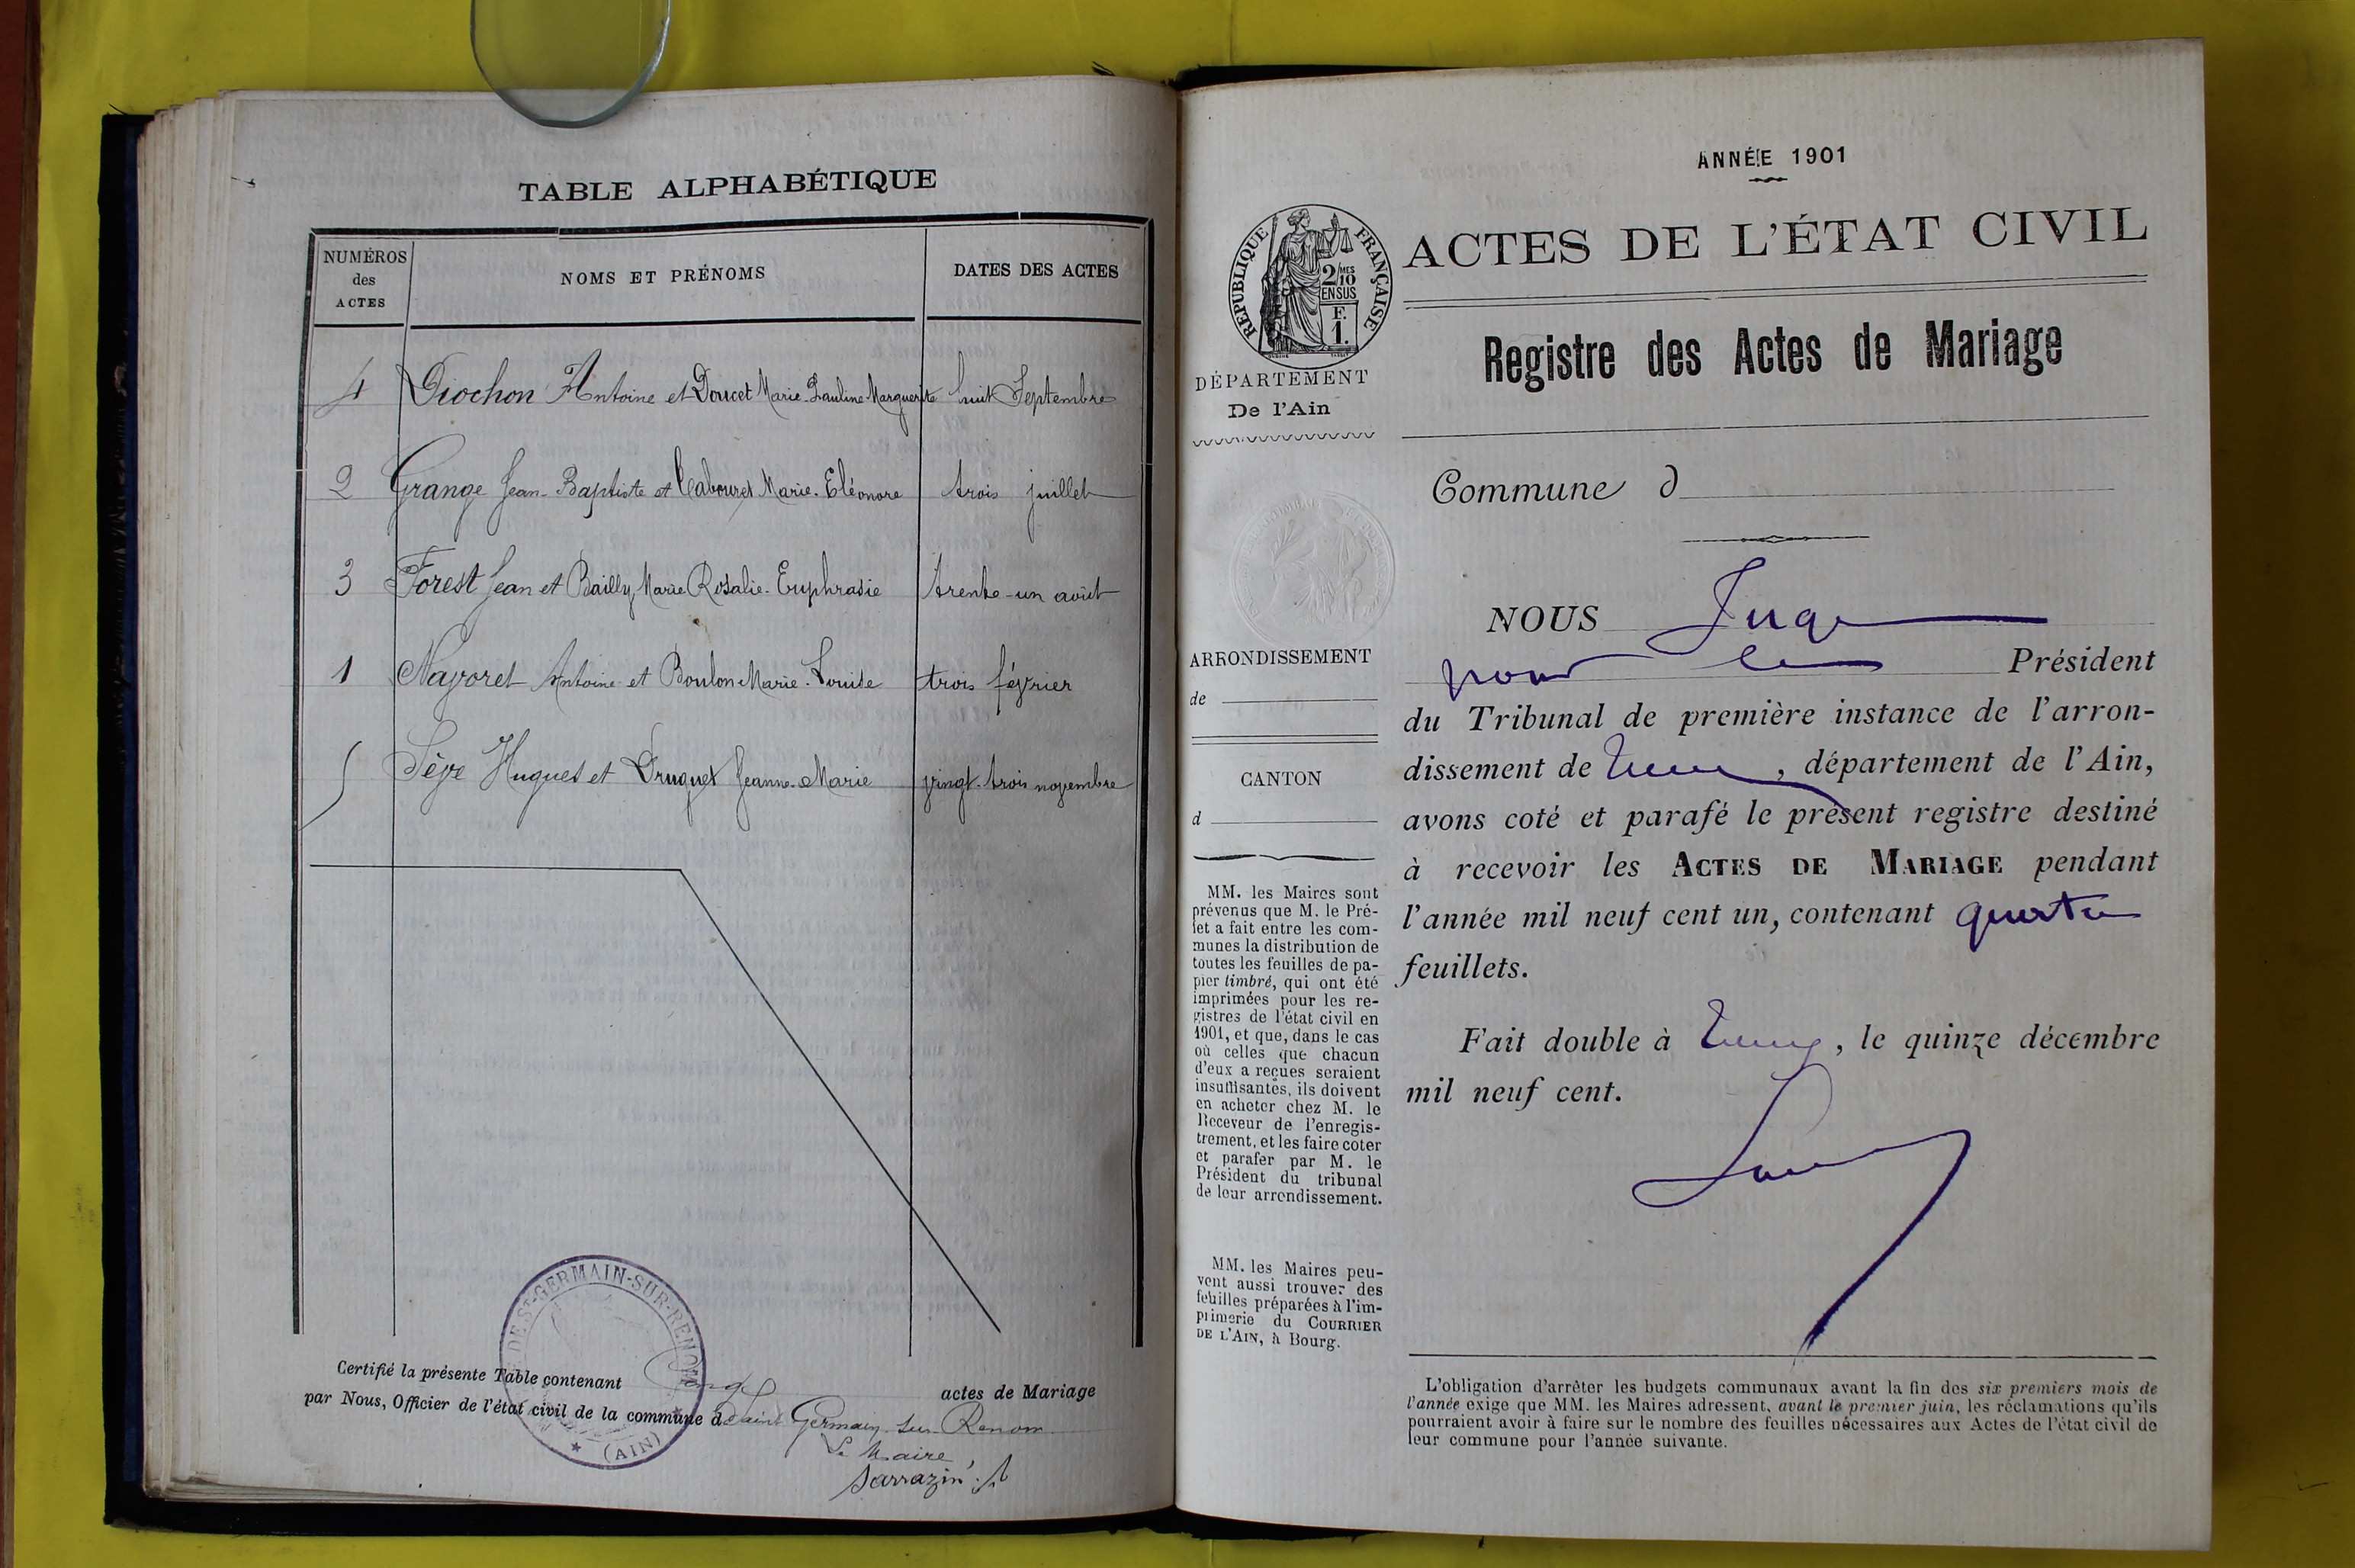 TABLE ALPHABÉTIQUE
NUMÉROS
des
ACTES
NOMS ET PRÉNOMS
DATES DES ACTES
4 Diochon Antoine et Doucet Marie-Pauline Marguerite huit Septembre
2 Grange Jean-Baptiste et Cabouret Marie-Eléonore trois juillet
3 Forest Jean et Bailly Marie Rosalie-Euphrasie trente-un août
1 Nayoret Antoine et Boulon Marie-Louise trois février
5 Sève Hugues et Druguet Jeanne-Marie vingt-trois novembre
DE ST-GERMAIN-SUR-RENOM
(AIN)
Certifié la présente Table contenant actes de Mariage
par Nous, Officier de l'état civil de la commune de Saint Germain-sur-Renom
Le Maire,
Sarrazin
ANNÉE 1901
RÉPUBLIQUE FRANÇAISE
2/10 MES
EN SUS
F.
1.
ACTES DE L'ÉTAT CIVIL
Registre des Actes de Mariage
DÉPARTEMENT
De l'Ain
Commune d
ARRONDISSEMENT
de
CANTON
d
MM. les Maires sont
prévenus que M. le Pré-
fet a fait entre les com-
munes la distribution de
toutes les feuilles de pa-
pier timbré, qui ont été
imprimées pour les re-
gistres de l'état civil en
1901, et que, dans le cas
où celles que chacun
d'eux a reçues seraient
insuffisantes, ils doivent
en acheter chez M. le
Receveur de l'enregis-
trement, et les faire coter
et parafer par M. le
Président du tribunal
de leur arrondissement.
MM. les Maires peu-
vent aussi trouver des
feuilles préparées à l'im-
primerie du COURRIER
DE L'AIN, à Bourg.
NOUS Juge
pour le Président
du Tribunal de première instance de l'arron-
dissement de , département de l'Ain,
avons coté et parafé le présent registre destiné
à recevoir les ACTES DE MARIAGE pendant
l'année mil neuf cent un, contenant quatre
feuillets.
Fait double à , le quinze décembre
mil neuf cent.
L'obligation d'arrêter les budgets communaux avant la fin des six premiers mois de
l'année exige que MM. les Maires adressent, avant le premier juin, les réclamations qu'ils
pourraient avoir à faire sur le nombre des feuilles nécessaires aux Actes de l'état civil de
leur commune pour l'année suivante.